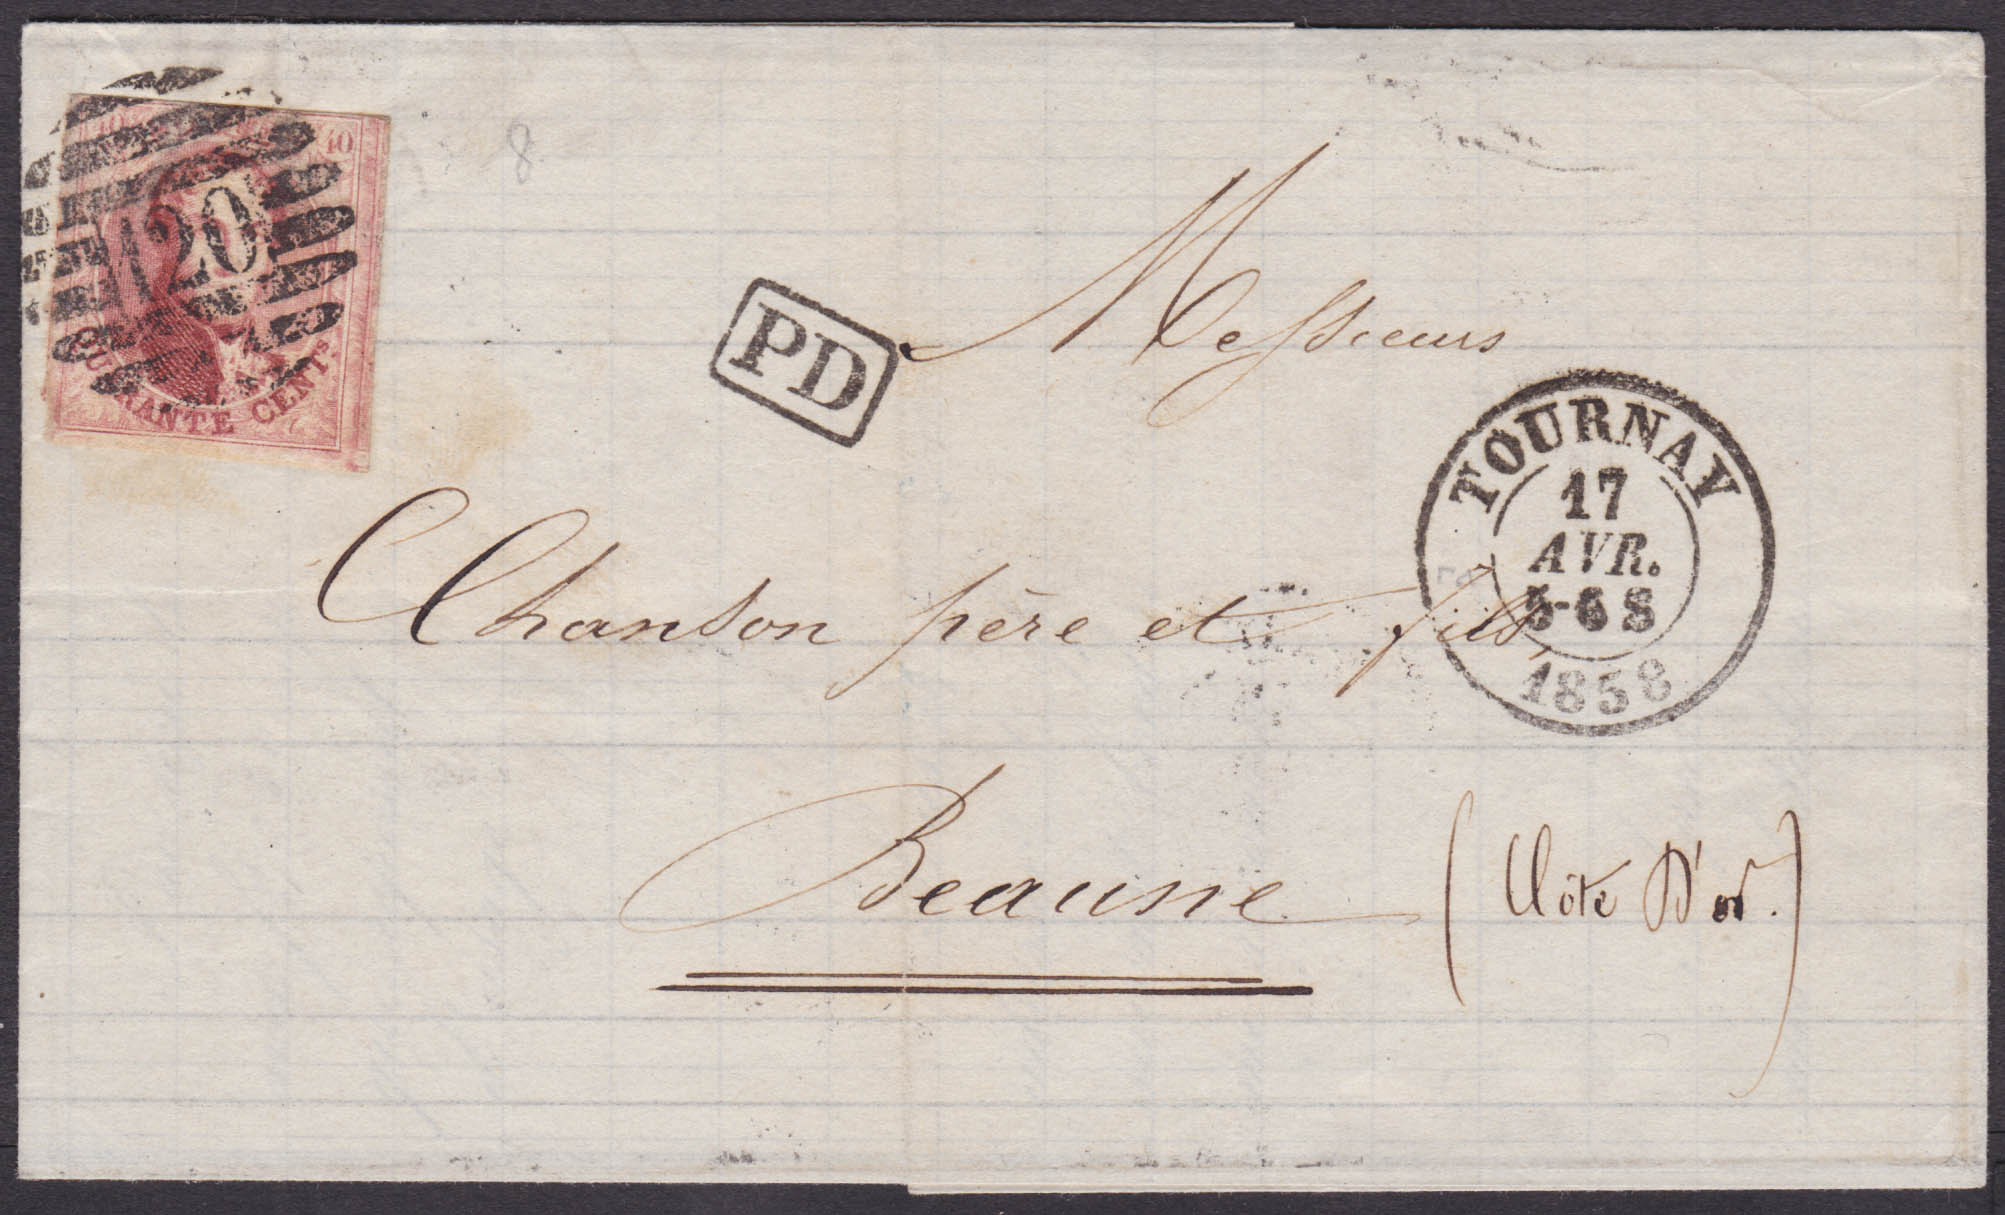 40 40
120
QUARANTE CENTS
8
PD
Messieurs
TOURNAY
17
AVR.
5-6 S
1858
Chanson père et fils,
Beaune (Côte D'or.)